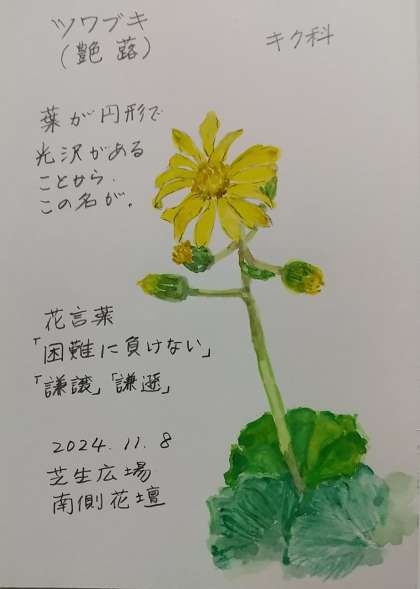 ツワブキ
(艶蕗)
キク科
葉が円形で
光沢がある
ことから.
この名が.
花言葉
「困難に負けない」
「謙譲」「謙遜」
2024.11.8
芝生広場
南側花壇